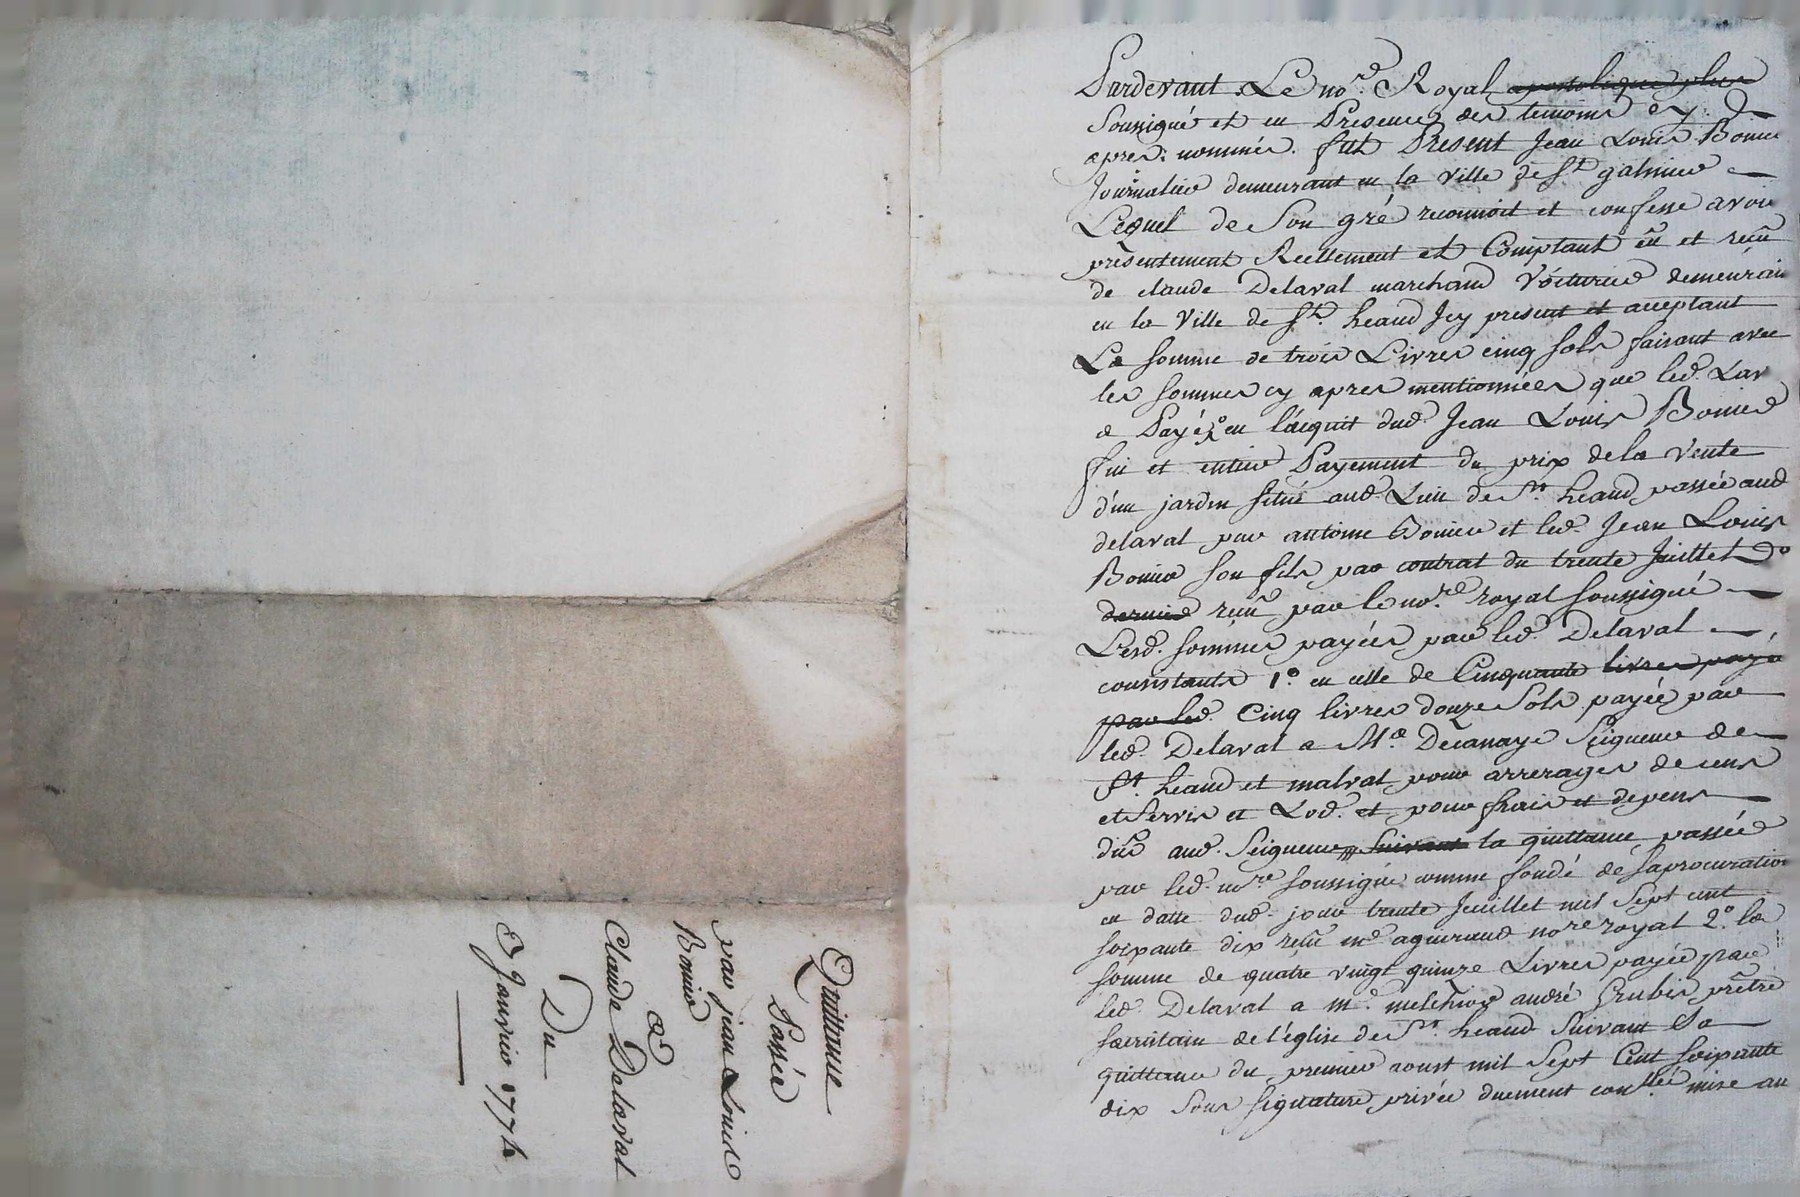 Quittance
Passée
par jean Louis
Bonier
a
Claude Delaval
Du
Janvier 1774
Pardevant Le no.re Royal apostolique plus
Soussigné et en Presence des temoins cy
apres nommés. fut Present Jean Louis Bonier
Journalier demeurant en la Ville de St galmier
Lequel de Son gré reconnoit et confesse avoir
presentement Reellement et Comptant eû et reçû
de claude Delaval marchand Voiturier demeurant
en la Ville de St. heand Icy present et acceptant
La somme de trois Livres cinq sols faisant avec
les sommes cy apres mentionnées que led.
a Payé en l'acquit dud. Jean Louis Bonier
fin et entier Payement du prix de la Vente
d'un jardin situé aud. Lieu de St. heand passée aud
delaval par antoine Bonier et led. Jean Louis
Bonier son fils par contrat du trente Juillet
dernier reçu par le no.re royal soussigné
Lesd. sommes payées par led. Delaval
consistants 1.o en celle de Cinquante livres payé
par led. Cinq livres douze Sols payée par
led. Delaval a Mr. Decanaye Seigneur de
St. heand et malval pour arrerages de cens
et Servis et Lod. et pour frais et depens
dûs aud. Seigneur Suivant la quittance passée
par led. no.re soussigné comme fondé de sa procuration
en datte dud. jour trente Juillet mil Sept cent
soixante dix reçû me aguiraud no.re royal 2.o la
somme de quatre vingt quinze Livres payée par
led. Delaval a mre. melchior andré Grubis prêtre
sacristain de l'église de St. heand Suivant Sa
quittance du premier aoust mil Sept Cent soixante
dix Sous signature privée duement con.llée mise au